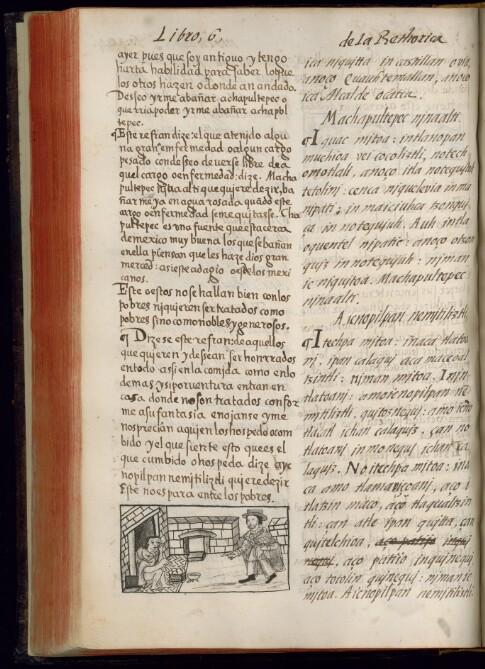 Libro, 6,
de la Rethorica
ayer pues que soy antiguo y tengo
harta habilidad para saber lo que
los otros hazen o donde an andado.
Deseo yrme abañar achapultepec o
querria poder yrme abañar achapul
tepec.
¶Este refran dize: el que atenido algu
na gran enfermedad o algun cargo
pesado con deseo de verse libre de a
quel cargo o enfermedad: dize. Macha
pultepec ninaalti que quiere dezir, ba
ñarme ya en agua rosada quando este
cargo o enfermedad se me quitase. Cha
pultepec es una fuente que esta cerca
de mexico muy buena los que se bañan
en ella piensan que les haze dios gran
merced: asi es este adagio de los mexi
canos.
Este o estos no se hallan bien con los
pobres ni quieren ser tratados como
pobres sino como nobles y generosos.
¶ Dize se este refran: de aquellos
que quieren y desean ser honrrados
en todo asi en la comida como en lo
demas y si por ventura entran en
casa donde no son tratados confor
me a su fantasia enojanse y me
nosprecian a quien los hospedo o com
bido y el que siente esto que es el
que cumbido o hospedo. dize aye
nopilpan nemitiliztli quiere dezir
Este no es para entre los pobres.
ica niquitta in castillan ovia,
anoço Quauhtemallan, anoço
ica Alcalde ocatca.
Machapultepec ninaalti.
¶Iquac mitoa: intlanopan
muchioa vei cocoliztli, notech
omotlali, anoço itla notequiuh
tetolini: cenca niquelevia inma
nipati, in maiciuhca tzonqui
ça in notequiuh. Auh intla
oquentel nipatic: anoço otzon
quiz in notequiuh: niman
ic niquitoa. Machapultepec
ninaalti.
Aicnopilpan nemitiliztli.
¶Itechpa mitoa: inaca tlatoa
ni, ipan calaqui aca maceoal
tzintli: niman mitoa. Inin
tlatoani: amo icnopilpan ne
mitiliztli, quitoznequi: amo icno
tlacatl ichan calaquiz, çan no
tlatoani in monequi ichan ca
laquiz. No itechpa mitoa: ina
ca amo tlamaviçoani, aço i
tlatzin maco, aço tlaqualtzin
tli: çan atle ipan quitta, çan
quitelchioa,
aço patiio inquinequi
aço totolin quinequi: niman ic
mitoa. Aicnopilpan nemitiliztli.